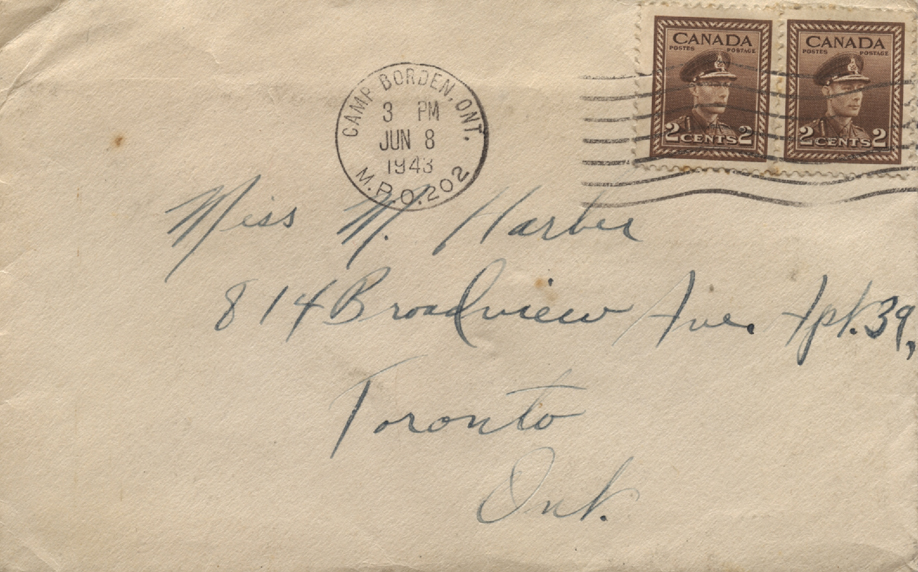 CANADA
POSTES POSTAGE
2 CENTS 2
CANADA
POSTES POSTAGE
2 CENTS 2
CAMP BORDEN, ONT.
3 PM
JUN 8
1943
M.P.O. 202
Miss M. Harber
814 Broadview Ave. Apt. 39,
Toronto
Ont.